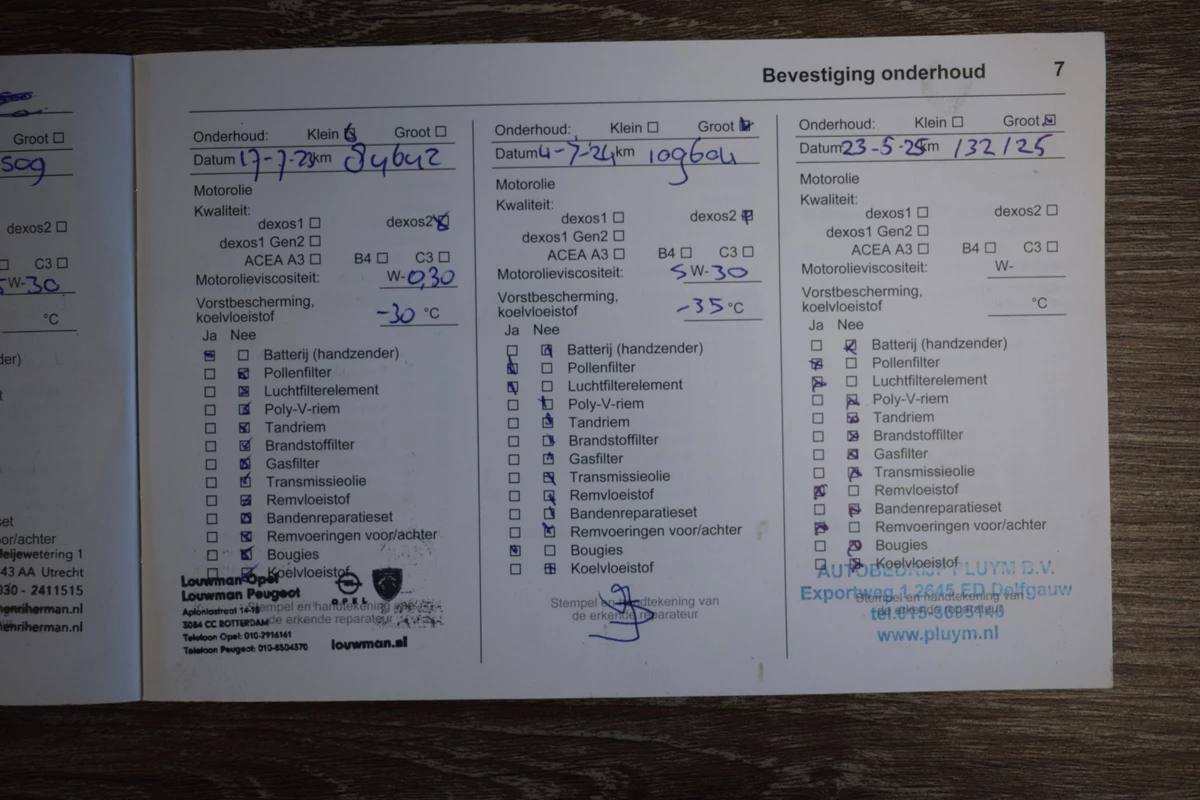 Bevestiging onderhoud 7
Groot
dexos2
C3
W-30
°C
Utrecht
030 - 2411515
Onderhoud: Klein Groot
Datum 17-7-23 km
Motorolie
Kwaliteit:
dexos1 dexos2
dexos1 Gen2
ACEA A3 B4 C3
Motorolieviscositeit: W-0,30
Vorstbescherming,
koelvloeistof -30 °C
Ja Nee
Batterij (handzender)
Pollenfilter
Luchtfilterelement
Poly-V-riem
Tandriem
Brandstoffilter
Gasfilter
Transmissieolie
Remvloeistof
Bandenreparatieset
Remvoeringen voor/achter
Bougies
Koelvloeistof
Louwman Opel
Louwman Peugeot
OPEL
Stempel en handtekening van
de erkende reparateur
3084 CC ROTTERDAM
Telefoon Opel: 010-2916161
Telefoon Peugeot: 010-8504370
louwman.nl
Onderhoud: Klein Groot
Datum 4-7-24 km 109604
Motorolie
Kwaliteit:
dexos1 dexos2
dexos1 Gen2
ACEA A3 B4 C3
Motorolieviscositeit: 5 W-30
Vorstbescherming,
koelvloeistof -35 °C
Ja Nee
Batterij (handzender)
Pollenfilter
Luchtfilterelement
Poly-V-riem
Tandriem
Brandstoffilter
Gasfilter
Transmissieolie
Remvloeistof
Bandenreparatieset
Remvoeringen voor/achter
Bougies
Koelvloeistof
Stempel en handtekening van
de erkende reparateur
Onderhoud: Klein Groot
Datum 23-5-25 km 132125
Motorolie
Kwaliteit:
dexos1 dexos2
dexos1 Gen2
ACEA A3 B4 C3
Motorolieviscositeit: W-
Vorstbescherming,
koelvloeistof °C
Ja Nee
Batterij (handzender)
Pollenfilter
Luchtfilterelement
Poly-V-riem
Tandriem
Brandstoffilter
Gasfilter
Transmissieolie
Remvloeistof
Bandenreparatieset
Remvoeringen voor/achter
Bougies
Koelvloeistof
AUTOBEDRIJF PLUYM B.V.
Exportweg 1 2645 ED Delfgauw
Stempel en handtekening van
de erkende reparateur
www.pluym.nl